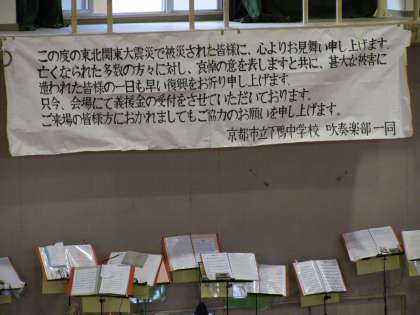 この度の東北関東大震災で被災された皆様に、心よりお見舞い申し上げます。
亡くなられた多数の方々に対し、哀悼の意を表しますと共に、甚大な被害に
遭われた皆様の一日も早い復興をお祈り申し上げます。
只今、会場にて義援金の受付をさせていただいております。
ご来場の皆様方におかれましてもご協力のお願いを申し上げます。
京都市立下鴨中学校 吹奏楽部一同